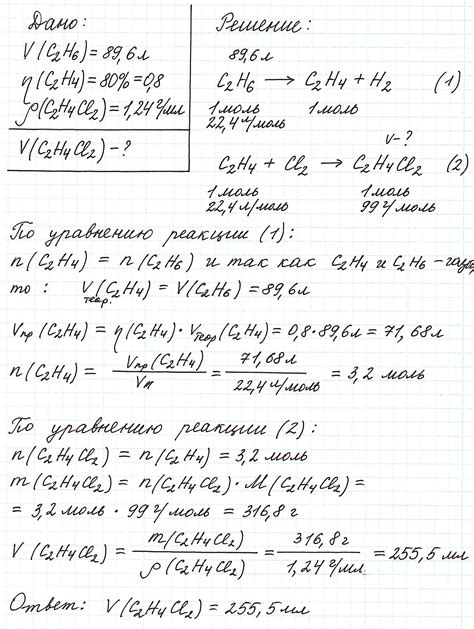 Дано:
V(C₂H₆)=89,6л
η(C₂H₄)=80%=0,8
ρ(C₂H₄Cl₂)=1,24г/мл
V(C₂H₄Cl₂)-?
Решение:
89,6л
C₂H₆ → C₂H₄ + H₂ (1)
1моль 1моль
22,4л/моль
V-?
C₂H₄ + Cl₂ → C₂H₄Cl₂ (2)
1моль 1моль
22,4л/моль 99г/моль
По уравнению реакции (1):
n(C₂H₄) = n(C₂H₆) и так как C₂H₄ и C₂H₆ -
то: Vтеор.(C₂H₄) = V(C₂H₆) = 89,6л
Vпр(C₂H₄) = η(C₂H₄)·Vтеор(C₂H₄)=0,8·89,6л = 71,68л
n(C₂H₄) = Vпр(C₂H₄)/Vm = 71,68л/22,4л/моль = 3,2 моль
По уравнению реакции (2):
n(C₂H₄Cl₂) = n(C₂H₄) = 3,2 моль
m(C₂H₄Cl₂) = n(C₂H₄Cl₂)·M(C₂H₄Cl₂)=
= 3,2 моль · 99 г/моль = 316,8 г
V(C₂H₄Cl₂) = m(C₂H₄Cl₂)/ρ(C₂H₄Cl₂) = 316,8г/1,24г/мл = 255,5 мл
Ответ: V(C₂H₄Cl₂) = 255,5 мл